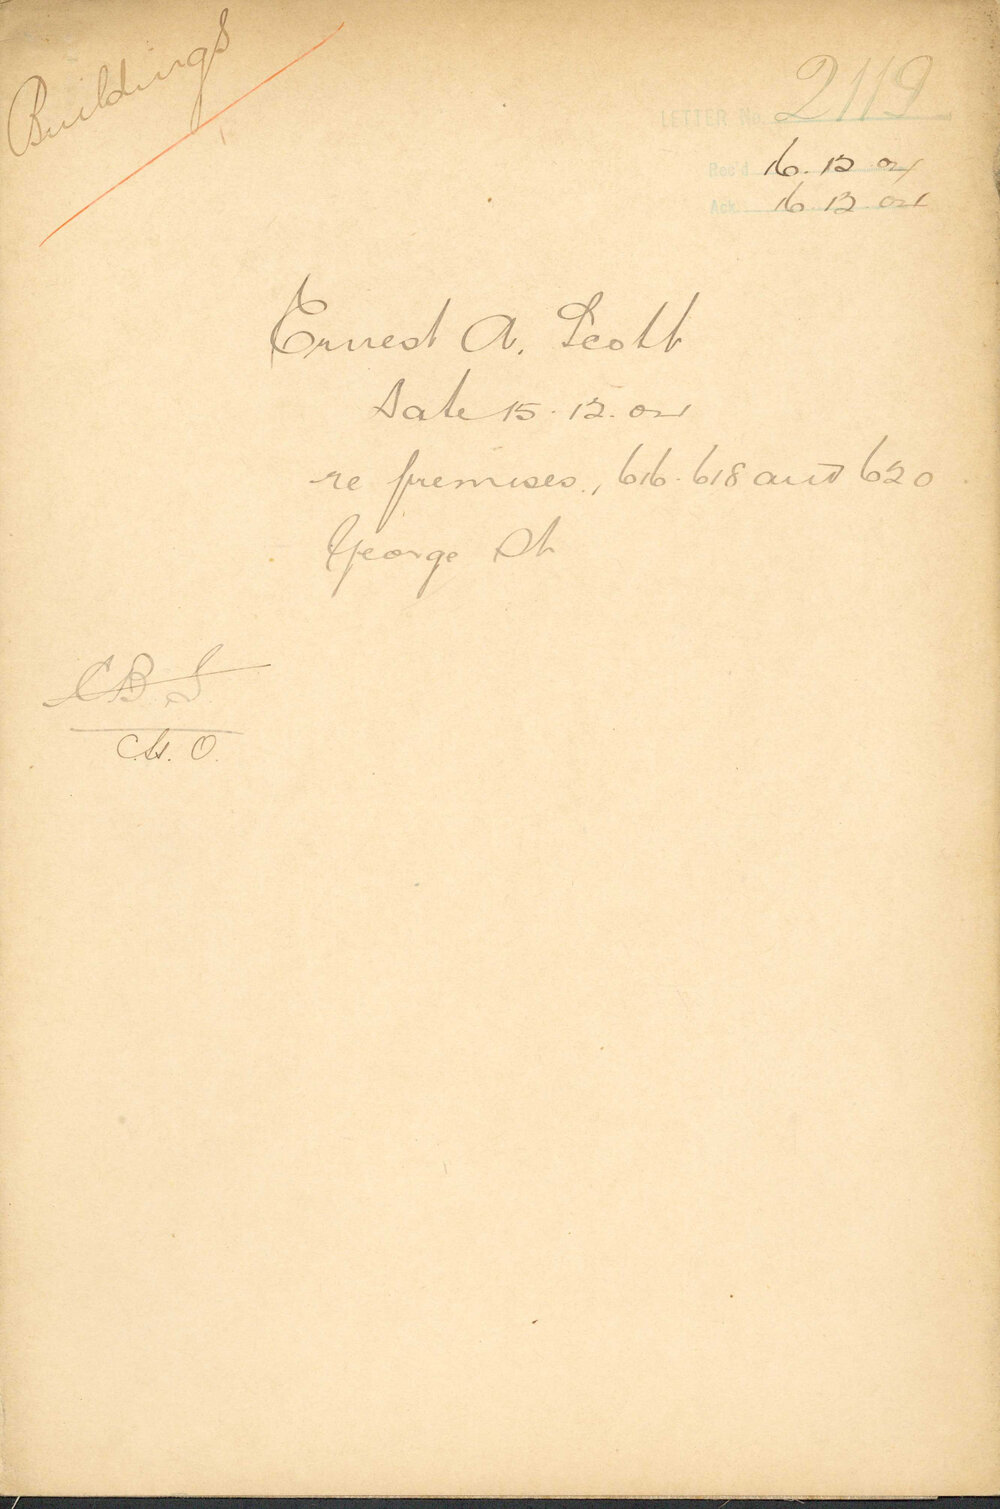 Buildings
LETTER No. 2119
Rec'd 16. 12 04
Ack. 16 12 04
Ernest A. Scott
Date 15. 12. 04
re premises, 616. 618 and 620
George St
C B S
C.H. O.